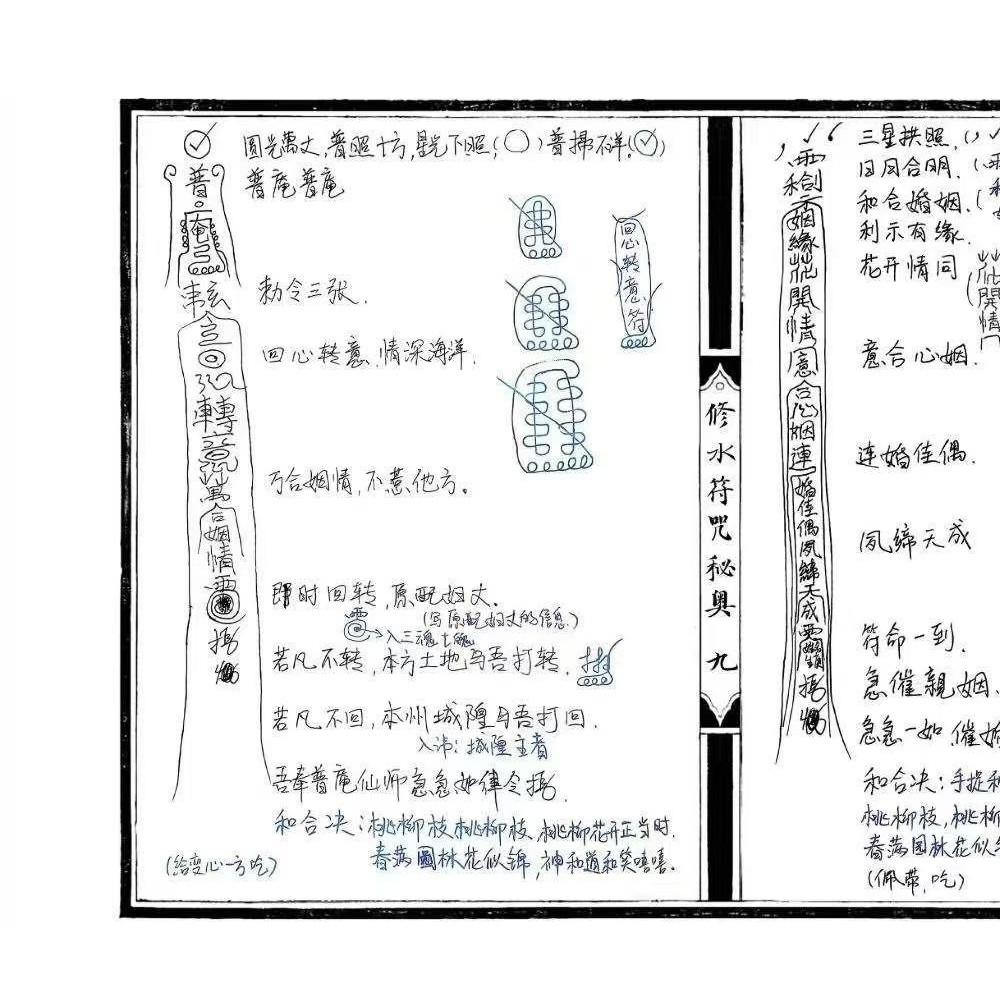 圆光萬丈,普照十方,星光下照,(○)普掃不祥,(✓)
普庵普庵
勅令三张.
回心转意,情深海洋.
万合姻情,不惹他方。
即时回转,原配妇丈.
(写原配妇丈的信息)
入三魂七魄
若凡不转,本方土地与吾打转.
若凡不回,本州城隍与吾打回.
入讳:城隍主者
吾奉普庵仙师急急如律令
和合决:桃柳枝,桃柳枝,桃柳花开正当时.
春满園林花似锦,神和道和笑嘻嘻.
(给变心一方吃)
普
庵
轉
意
萬
合
姻
情
回心转意符
修水符咒秘奥 九
姻緣花開情意合心姻連婚佳偶夙締天成
三星拱照.
日月合明.
和合婚姻.
利示有缘.
花开情同
意合心姻.
连婚佳偶.
夙缔天成
符命一到.
急催親姻.
急急一如催婚
和合决:手捏和
桃柳枝,桃柳
春满園林花似
(佩带,吃)
開
情